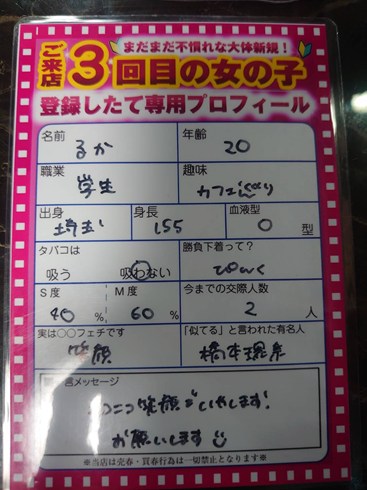 まだまだ不慣れな大体新規!
ご来店
3回目の女の子
登録したて専用プロフィール
名前
るか
年齢
20
職業
学生
趣味
カフェ巡り
出身
埼玉
身長
155
血液型
O 型
タバコは
吸う 吸わない
勝負下着って?
pink
S度
40 %
M度
60 %
今までの交際人数
2 人
実は○○フェチです
笑顔
「似てる」と言われた有名人
橋本環奈
言メッセージ
ニコニコ笑顔でいやします!
お願いします
※当店は売春・買春行為は一切禁止となります※